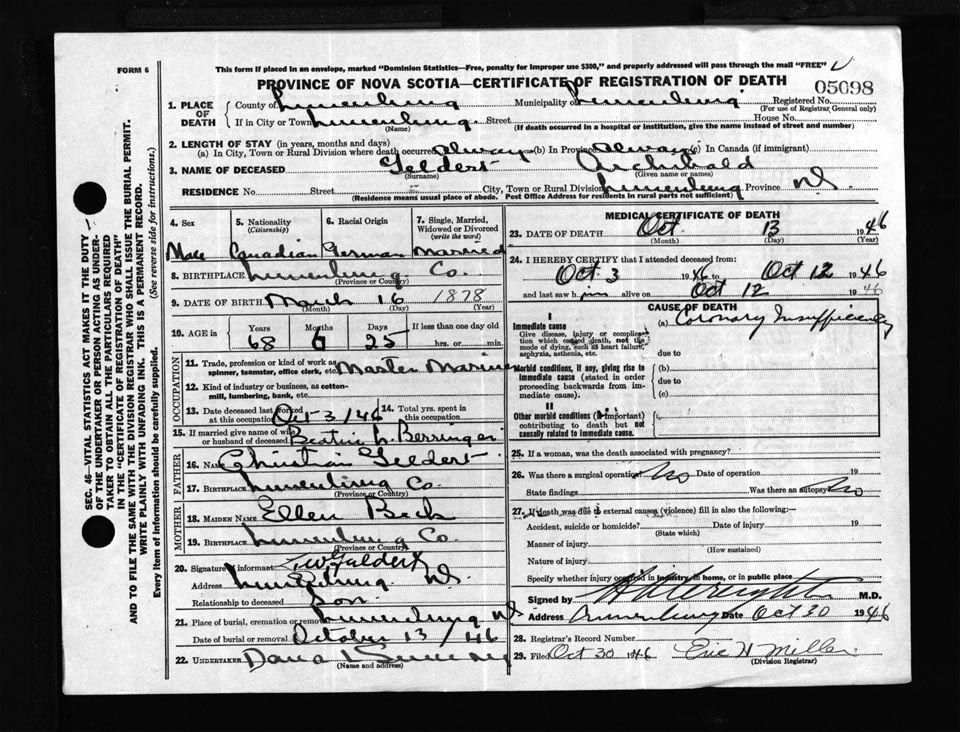 FORM 6
This form if placed in an envelope, marked "Dominion Statistics—Free, penalty for improper use $300," and properly addressed will pass through the mail "FREE"
PROVINCE OF NOVA SCOTIA—CERTIFICATE OF REGISTRATION OF DEATH
05098
1. PLACE OF DEATH County of Lunenburg Municipality of Lunenburg Registered No.
(For use of Registrar General only)
If in City or Town Lunenburg Street House No.
(Name) (If death occurred in a hospital or institution, give the name instead of street and number)
2. LENGTH OF STAY (in years, months and days)
(a) In City, Town or Rural Division where death occurred always (b) In Province always (c) In Canada (if immigrant)
3. NAME OF DECEASED Geldert Archibald
(Surname) (Given name or names)
RESIDENCE No. Street City, Town or Rural Division Lunenburg Province NS.
(Residence means usual place of abode. Post Office Address for residents in rural parts not sufficient)
4. Sex 5. Nationality (Citizenship) 6. Racial Origin 7. Single, Married, Widowed or Divorced (write the word)
Male Canadian German Married
8. BIRTHPLACE Lunenburg Co.
(Province or Country)
9. DATE OF BIRTH March 16 1878
(Month) (Day) (Year)
10. AGE in Years Months Days If less than one day old
68 6 25 hrs. or min.
OCCUPATION
11. Trade, profession or kind of work as spinner, teamster, office clerk, etc. Master Mariner
12. Kind of industry or business, as cotton-mill, lumbering, bank, etc.
13. Date deceased last worked at this occupation Oct 3/46 14. Total yrs. spent in this occupation
15. If married give name of wife or husband of deceased L. Berringer
FATHER
16. Name Christian Geldert
17. Birthplace Lunenburg Co.
(Province or Country)
MOTHER
18. MAIDEN NAME Ellen Beck
19. Birthplace Lunenburg Co.
(Province or Country)
20. Signature of informant Geldert
Address Lunenburg NS.
Relationship to deceased Son
21. Place of burial, cremation or removal Lunenburg NS
Date of burial or removal October 13/46
22. UNDERTAKER
(Name and address)
MEDICAL CERTIFICATE OF DEATH
23. DATE OF DEATH Oct. 13 1946
(Month) (Day) (Year)
24. I HEREBY CERTIFY that I attended deceased from:
Oct 3 1946 to Oct 12 1946
and last saw him alive on Oct 12 1946
CAUSE OF DEATH
I
Immediate cause (a) Coronary Insufficiency
Give disease, injury or complication which caused death, not the mode of dying, such as heart failure, asphyxia, asthenia, etc.
due to
Morbid conditions, if any, giving rise to immediate cause (stated in order proceeding backwards from immediate cause).
(b)
due to
(c)
II
Other morbid conditions (if important) contributing to death but not causally related to immediate cause.
25. If a woman, was the death associated with pregnancy?
26. Was there a surgical operation? No Date of operation 19
State findings Was there an autopsy? No
27. If death was due to external causes (violence) fill in also the following:—
Accident, suicide or homicide? Date of injury 19
(State which)
Manner of injury
(How sustained)
Nature of injury
Specify whether injury occurred in industry, in home, or in public place
Signed by M.D.
Address Lunenburg Date Oct 30 1946
28. Registrar's Record Number
29. Filed Oct 30 1946 Eric H Miller
(Division Registrar)
SEC. 46—VITAL STATISTICS ACT MAKES IT THE DUTY
OF THE UNDERTAKER OR PERSON ACTING AS UNDER-
TAKER TO OBTAIN ALL THE PARTICULARS REQUIRED
IN THE "CERTIFICATE OF REGISTRATION OF DEATH"
AND TO FILE THE SAME WITH THE DIVISION REGISTRAR WHO SHALL ISSUE THE BURIAL PERMIT.
WRITE PLAINLY WITH UNFADING INK. THIS IS A PERMANENT RECORD.
Every item of information should be carefully supplied. (See reverse side for instructions.)